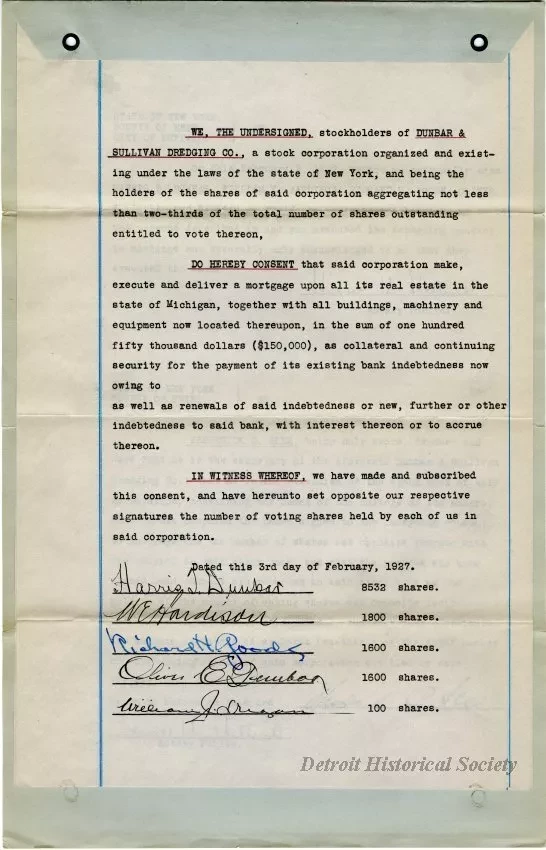 WE, THE UNDERSIGNED, stockholders of DUNBAR &
SULLIVAN DREDGING CO., a stock corporation organized and exist-
ing under the laws of the state of New York, and being the
holders of the shares of said corporation aggregating not less
than two-thirds of the total number of shares outstanding
entitled to vote thereon,
DO HEREBY CONSENT that said corporation make,
execute and deliver a mortgage upon all its real estate in the
state of Michigan, together with all buildings, machinery and
equipment now located thereupon, in the sum of one hundred
fifty thousand dollars ($150,000), as collateral and continuing
security for the payment of its existing bank indebtedness now
owing to
as well as renewals of said indebtedness or new, further or other
indebtedness to said bank, with interest thereon or to accrue
thereon.
IN WITNESS WHEREOF, we have made and subscribed
this consent, and have hereunto set opposite our respective
signatures the number of voting shares held by each of us in
said corporation.
Dated this 3rd day of February, 1927.
Harris T. Dunbar 8532 shares.
W E Hardison 1800 shares.
Richard H. 1600 shares.
Olive E. Dunbar 1600 shares.
William J. 100 shares.
Detroit Historical Society